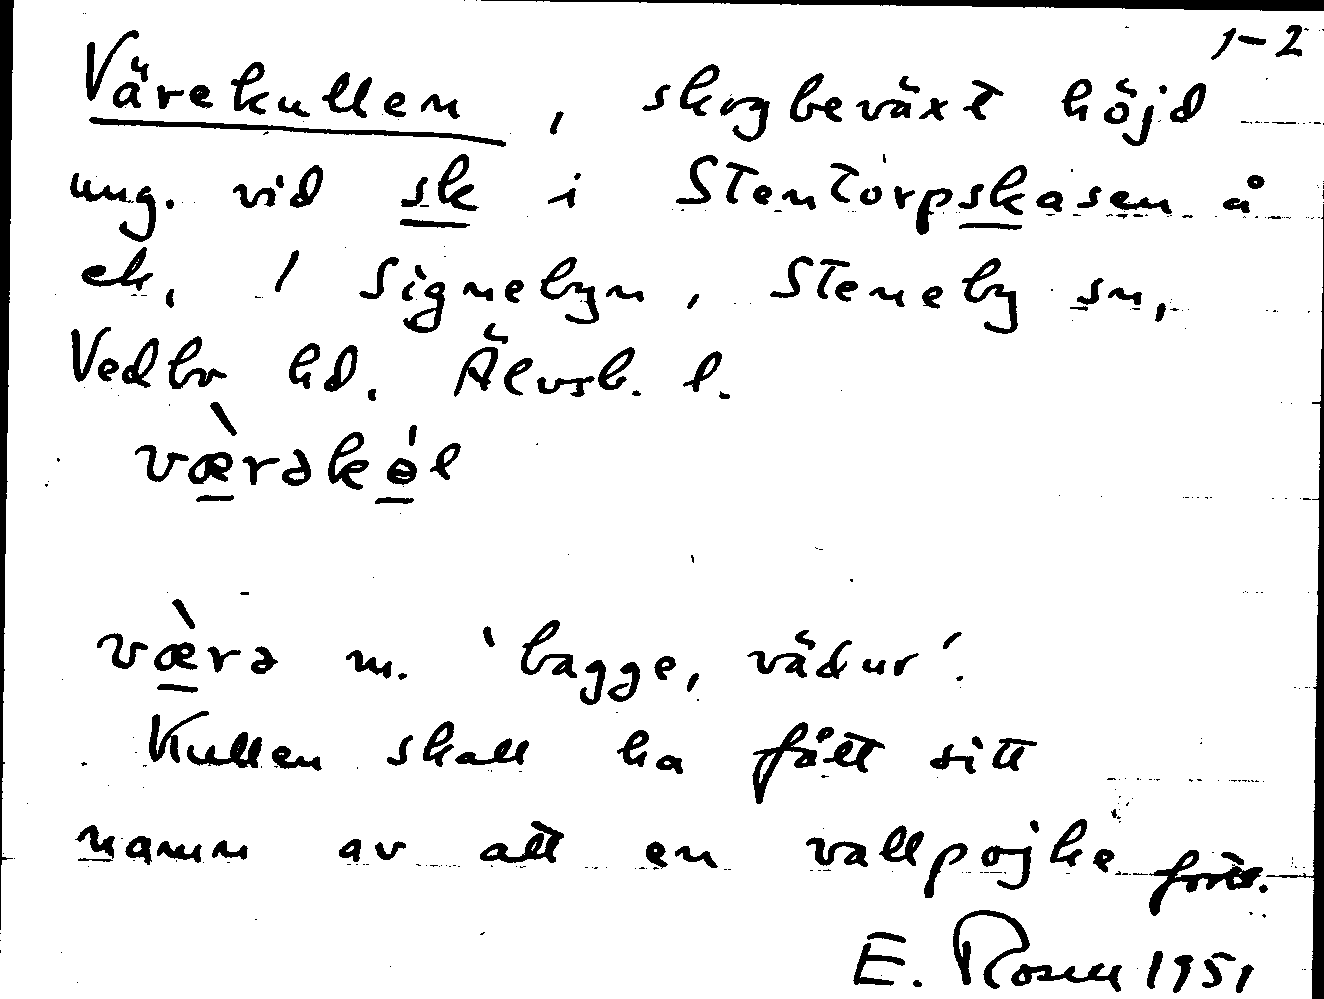 1-2
Värekullen, skogbeväxt höjd
ung. vid sk i Stentorpskasen å
ek, / Signebyn, Steneby sn,
Vedbo hd. Älvsb. l.
væ̀rəkɵ́l
væ̀rə m. 'bagge, vädur'.
Kullen skall ha fått sitt
namn av att en vallpojke forts.
E. Rosell 1951